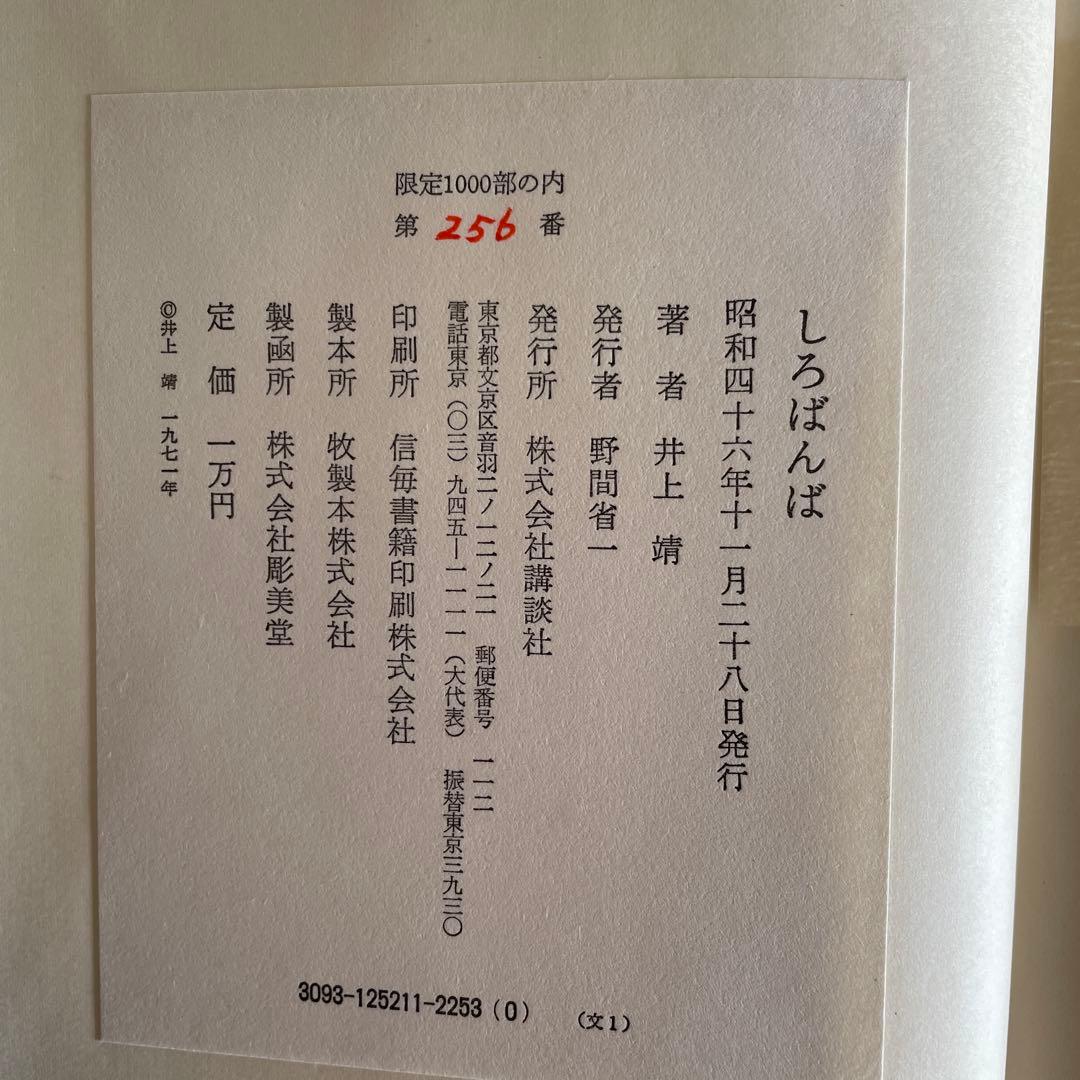 限定1000部の内
第 256 番
しろばんば
昭和四十六年十一月二十八日発行
著者 井上 靖
発行者 野間省一
発行所 株式会社講談社
東京都文京区音羽二ノ一二ノ二一 郵便番号 一一二
電話東京(〇三)九四五―一一一一(大代表) 振替東京三九三〇
印刷所 信毎書籍印刷株式会社
製本所 牧製本株式会社
製函所 株式会社彫美堂
定価 一万円
©井上 靖 一九七一年
3093-125211-2253(0) (文1)